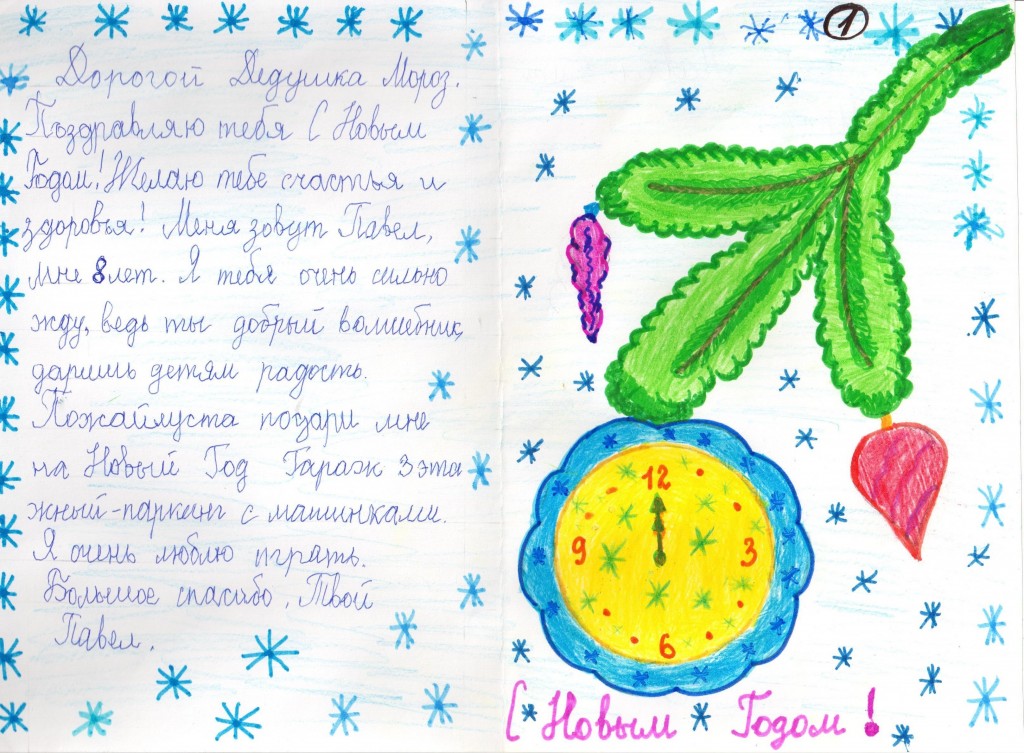 Дорогой Дедушка Мороз.
Поздравляю тебя С Новым
Годом! Желаю тебе счастья и
здоровья! Меня зовут Павел,
мне 8 лет. Я тебя очень сильно
жду, ведь ты добрый волшебник,
даришь детям радость.
Пожайлуста подари мне
на Новый Год Гараж 3 эта
жный-паркинг с машинками.
Я очень люблю играть.
Большое спасибо. Твой
Павел.
1
12
9
3
6
С Новым Годом!